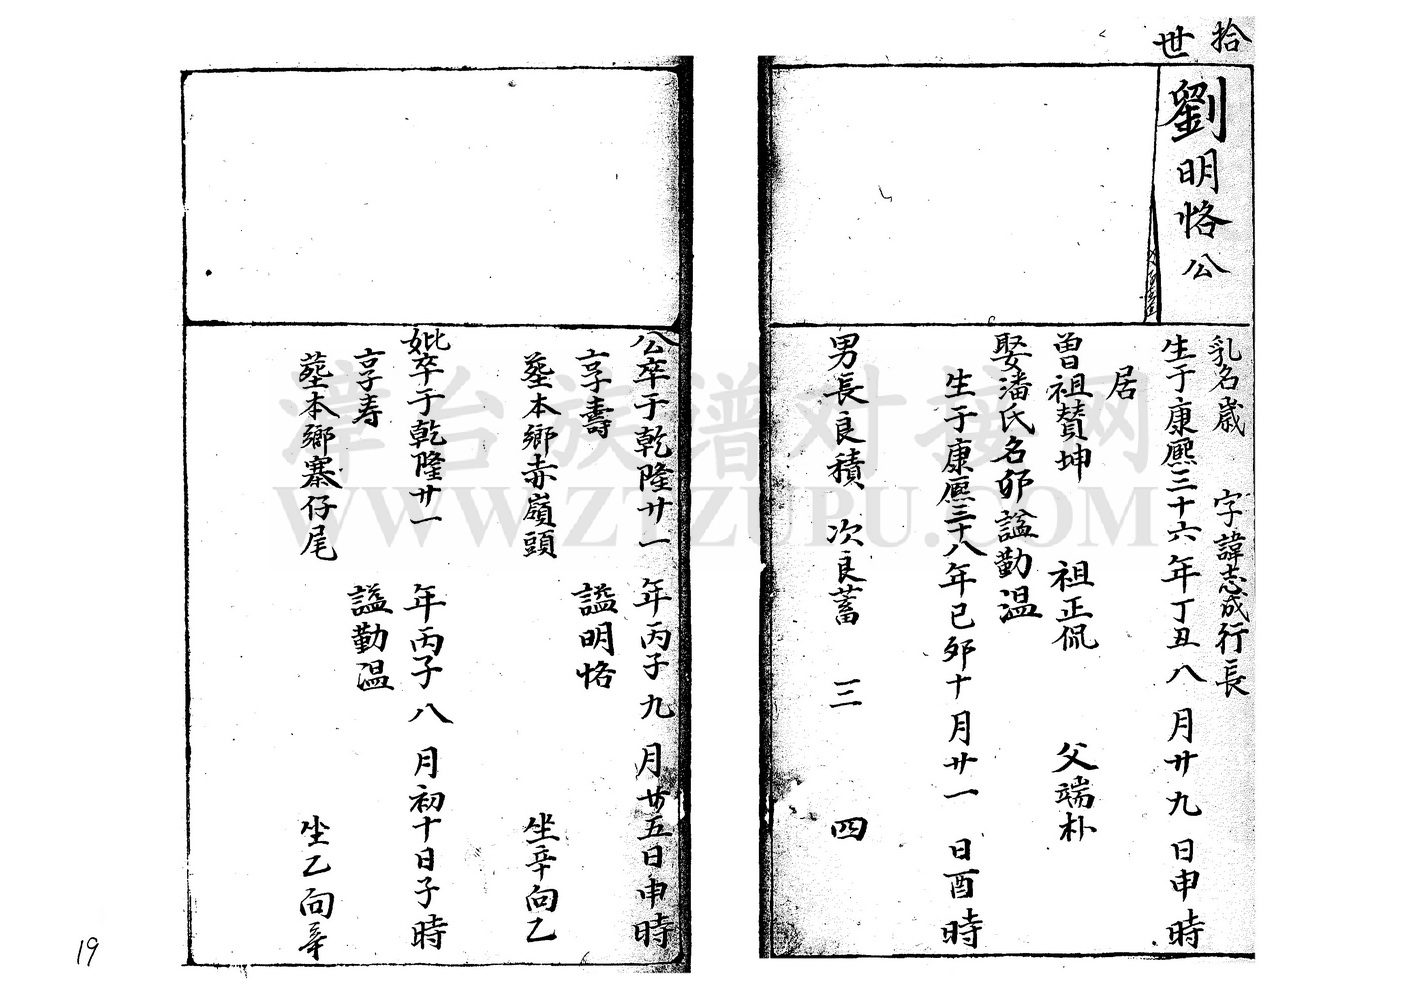 拾
世
劉明恪公
乳名歲 字諱志成行長
生于康熈三十六年丁丑八月廿九日申時
居
曾祖賛坤 祖正侃 父端朴
娶潘氏名卯謚勤温
生于康熈三十八年已卯十月廿一日酉時
男長良積 次良蓄 三 四
公卒于乾隆廿一年丙子九月廿五日申時
享壽 謚明恪
塟本鄉赤嶺頭 坐辛向乙
妣卒于乾隆廿一年丙子八月初十日子時
享寿 謚勤温
塟本鄉寨仔尾 坐乙向辛
漳台族谱对接网
WWW.ZTZUPU.COM
19